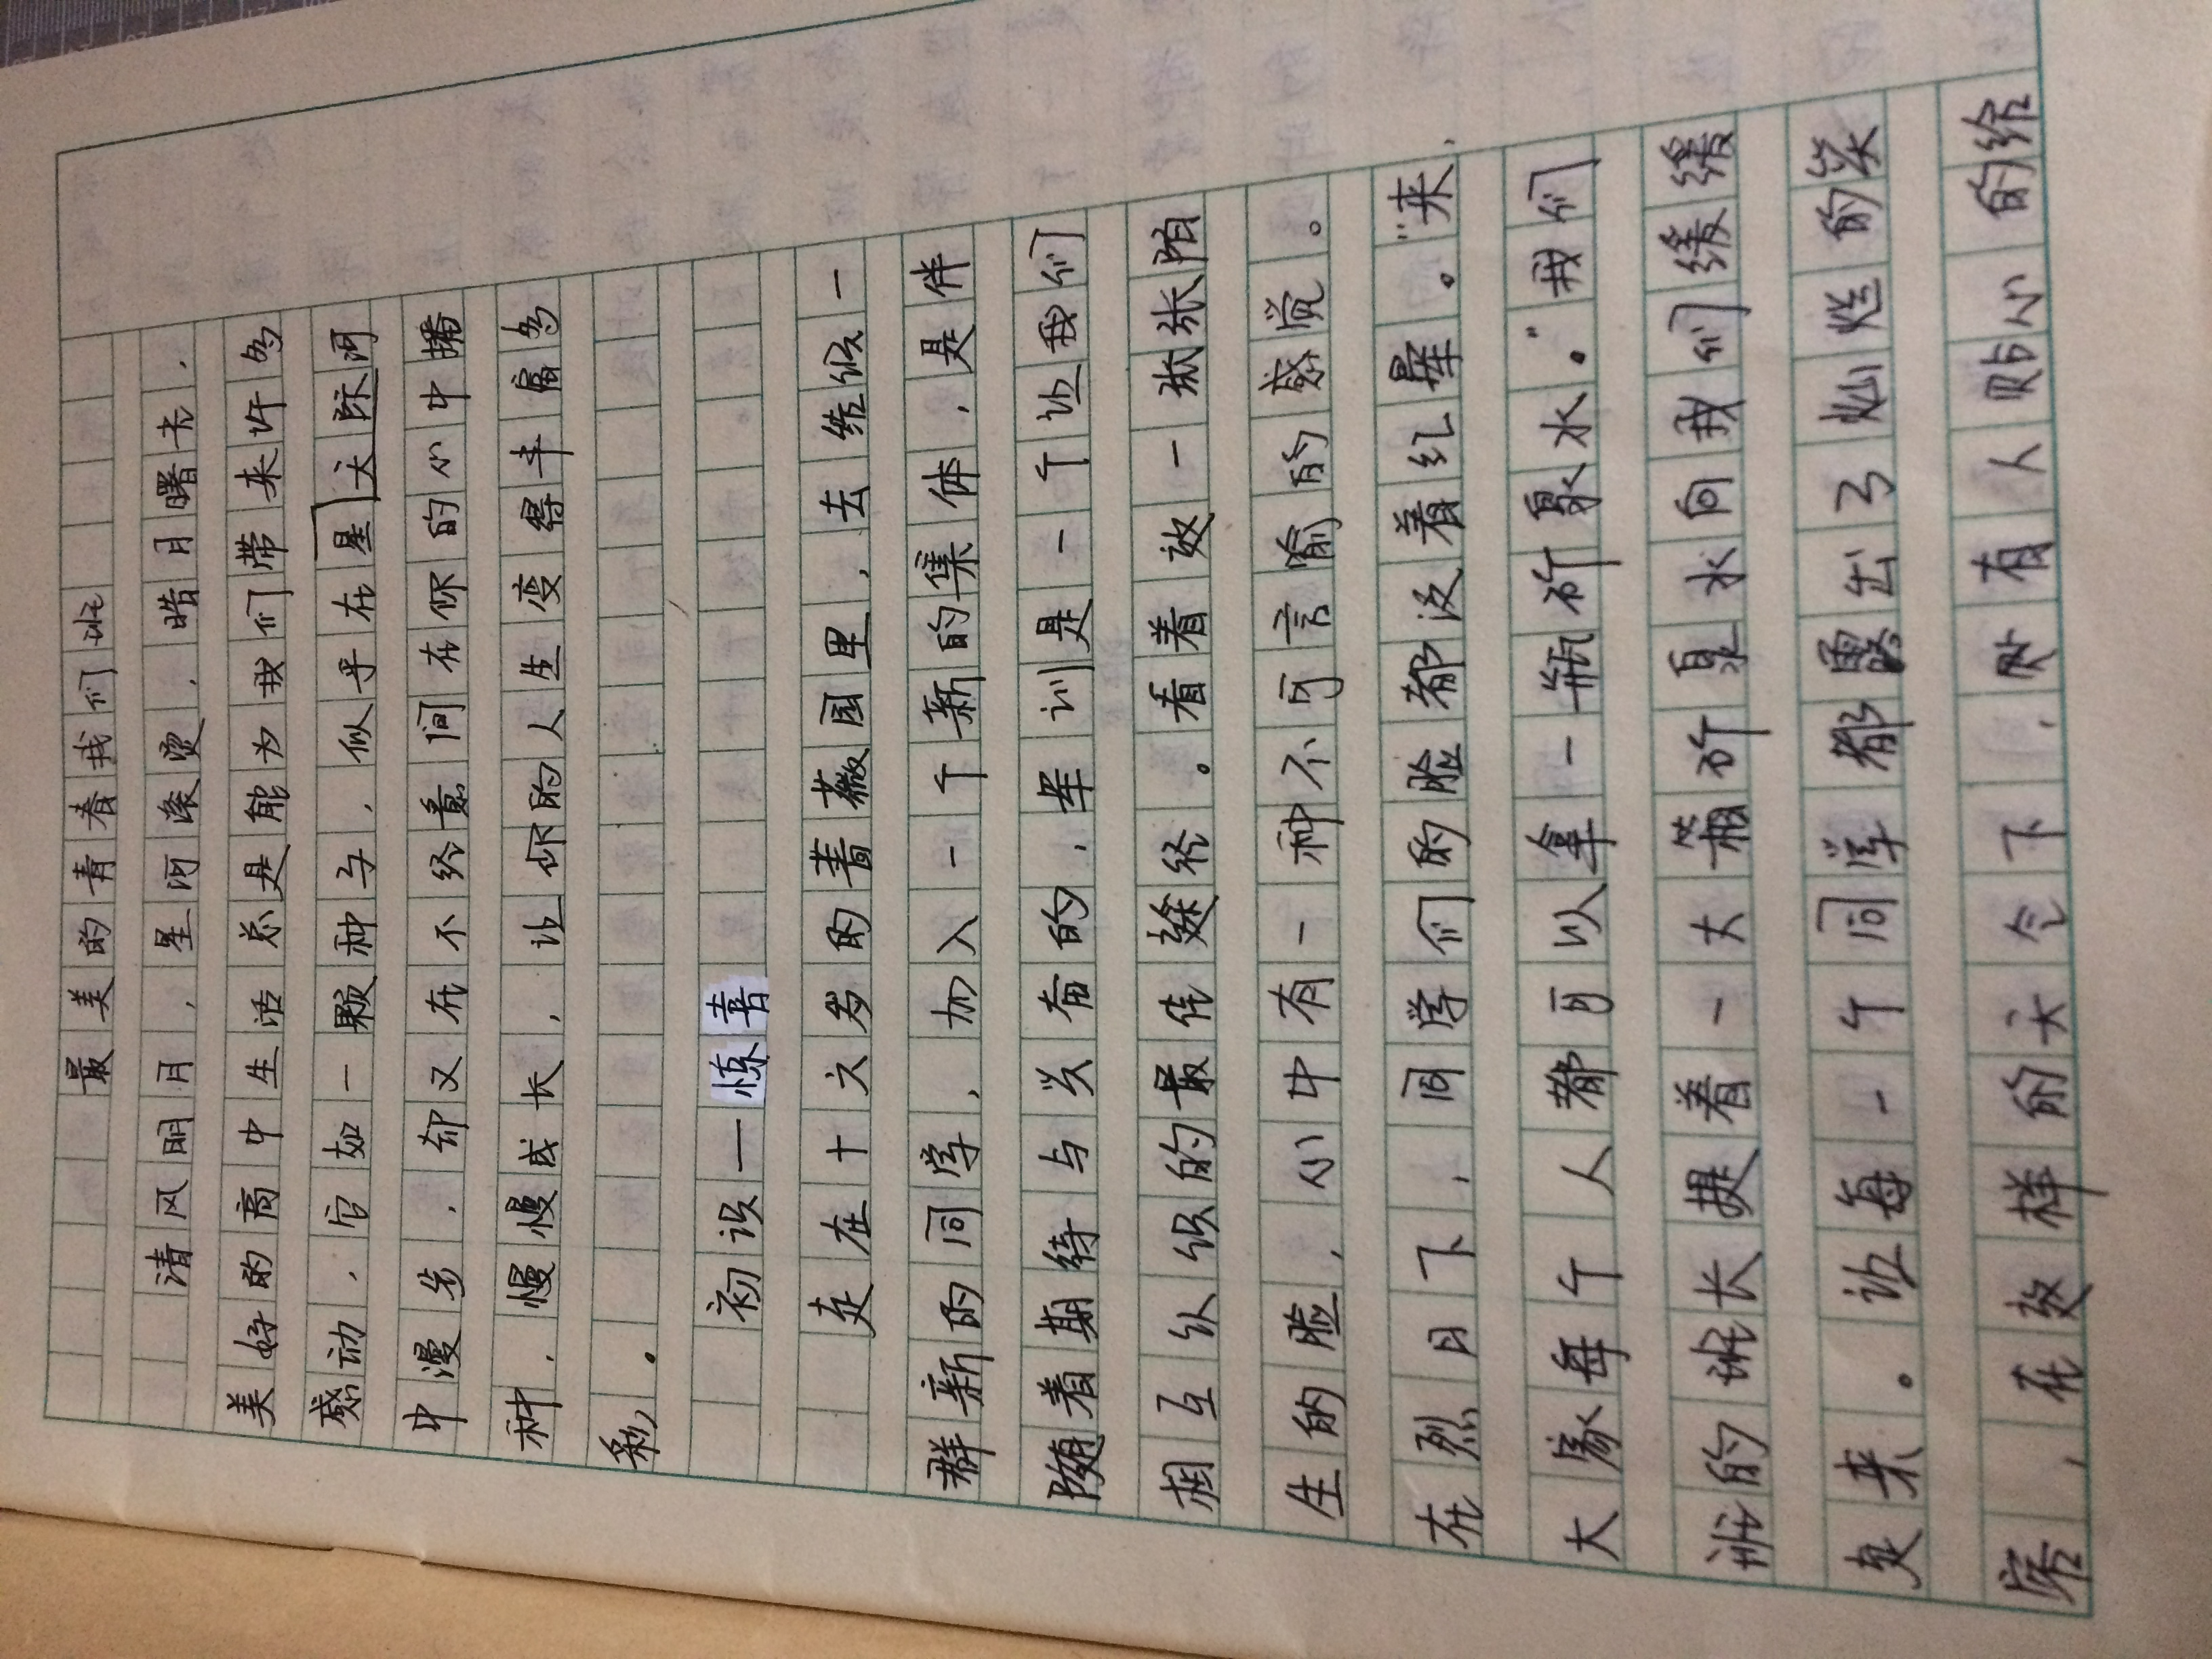 最美的青春我们班
清风明月，星河滚烫，皓月曙卡，
美好的高中生活总是能为我们带来许多
感动，它如一颗种子，似乎在星天际河
中漫步，却又在不经意间在你的心中播
种，慢慢成长，让你的人生变得丰富多
彩。
初识—惊喜
走在十六岁的蔷薇园里，去结假一
群新的同学，加入一个新的集体，是伴
随着期待与兴奋的，军训是一个让我们
相互认识的最佳途径。看着效一张张陌
生的脸，心中有一种不可言喻的感觉。
在烈日下，同学们的脸都泛着红晕。“来，
大家每个人都可以拿一瓶矿泉水。”我们
班的班长提着一大箱矿泉水向我们缓缓
走来。让每一个同学都露出了灿烂的笑
容，在这样的天气下，更有人贴心的给